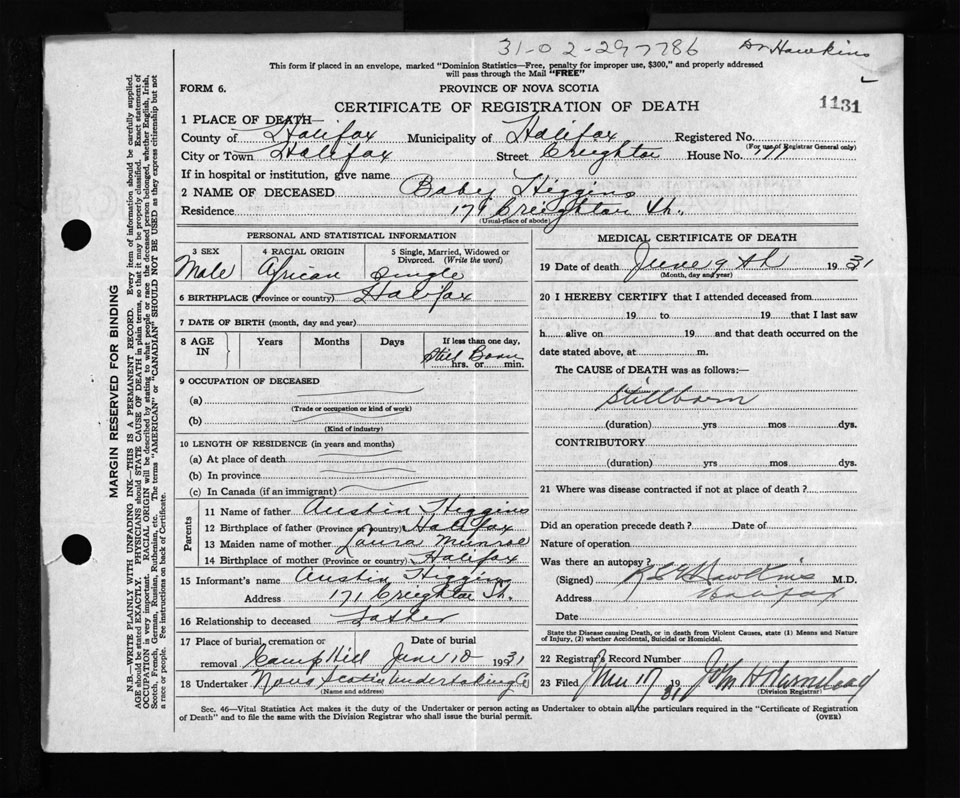 31-02-297786 Dr Hawkins
This form if placed in an envelope, marked "Dominion Statistics—Free, penalty for improper use, $300," and properly addressed
will pass through the Mail "FREE"
FORM 6. PROVINCE OF NOVA SCOTIA
CERTIFICATE OF REGISTRATION OF DEATH 1131
1 PLACE OF DEATH—
County of Halifax Municipality of Halifax Registered No.
(For use of Registrar General only)
City or Town Halifax Street Creighton House No. 171
If in hospital or institution, give name
2 NAME OF DECEASED Baby Higgins
Residence 171 Creighton St.
(Usual place of abode)
PERSONAL AND STATISTICAL INFORMATION
3 SEX 4 RACIAL ORIGIN 5 Single, Married, Widowed or
Divorced. (Write the word)
Male African Single
6 BIRTHPLACE (Province or country) Halifax
7 DATE OF BIRTH (month, day and year)
8 AGE IN Years Months Days If less than one day,
Still Born
hrs. or min.
9 OCCUPATION OF DECEASED
(a)
(Trade or occupation or kind of work)
(b)
(Kind of industry)
10 LENGTH OF RESIDENCE (in years and months)
(a) At place of death
(b) In province
(c) In Canada (if an immigrant)
Parents
11 Name of father Austin Higgins
12 Birthplace of father (Province or country) Halifax
13 Maiden name of mother Laura Munroe
14 Birthplace of mother (Province or country) Halifax
15 Informant's name Austin Higgins
Address 171 Creighton St.
16 Relationship to deceased Father
17 Place of burial, cremation or Date of burial
removal Camp Hill June 10 1931
18 Undertaker Nova Scotia Undertaking Co
(Name and address)
MEDICAL CERTIFICATE OF DEATH
19 Date of death June 9th 1931
(Month, day and year)
20 I HEREBY CERTIFY that I attended deceased from
19 to 19 that I last saw
h alive on 19 and that death occurred on the
date stated above, at m.
The CAUSE of DEATH was as follows:—
Stillborn
(duration) yrs mos dys.
CONTRIBUTORY
(duration) yrs mos dys.
21 Where was disease contracted if not at place of death?
Did an operation precede death? Date of
Nature of operation
Was there an autopsy?
(Signed) Hawkins M.D.
Address Halifax
Date
State the Disease causing Death, or in death from Violent Causes, state (1) Means and Nature
of Injury, (2) whether Accidental, Suicidal or Homicidal.
22 Registrar's Record Number
23 Filed June 17 1931 John H
(Division Registrar)
Sec. 46—Vital Statistics Act makes it the duty of the Undertaker or person acting as Undertaker to obtain all the particulars required in the "Certificate of Registration
of Death" and to file the same with the Division Registrar who shall issue the burial permit. (OVER)
MARGIN RESERVED FOR BINDING
N.B.—WRITE PLAINLY WITH UNFADING INK—THIS IS A PERMANENT RECORD. Every item of information should be carefully supplied.
AGE should be stated EXACTLY. PHYSICIANS should STATE CAUSE OF DEATH in plain terms, so that it may be properly classified. Exact statement of
OCCUPATION is very important. RACIAL ORIGIN will be described by stating to what people or race the deceased person belonged, whether English, Irish,
Scotch, French, German, Russian, Ruthenian, etc. The terms "AMERICAN" or "CANADIAN" SHOULD NOT BE USED as they express citizenship but not
a race or people. See instructions on back of Certificate.